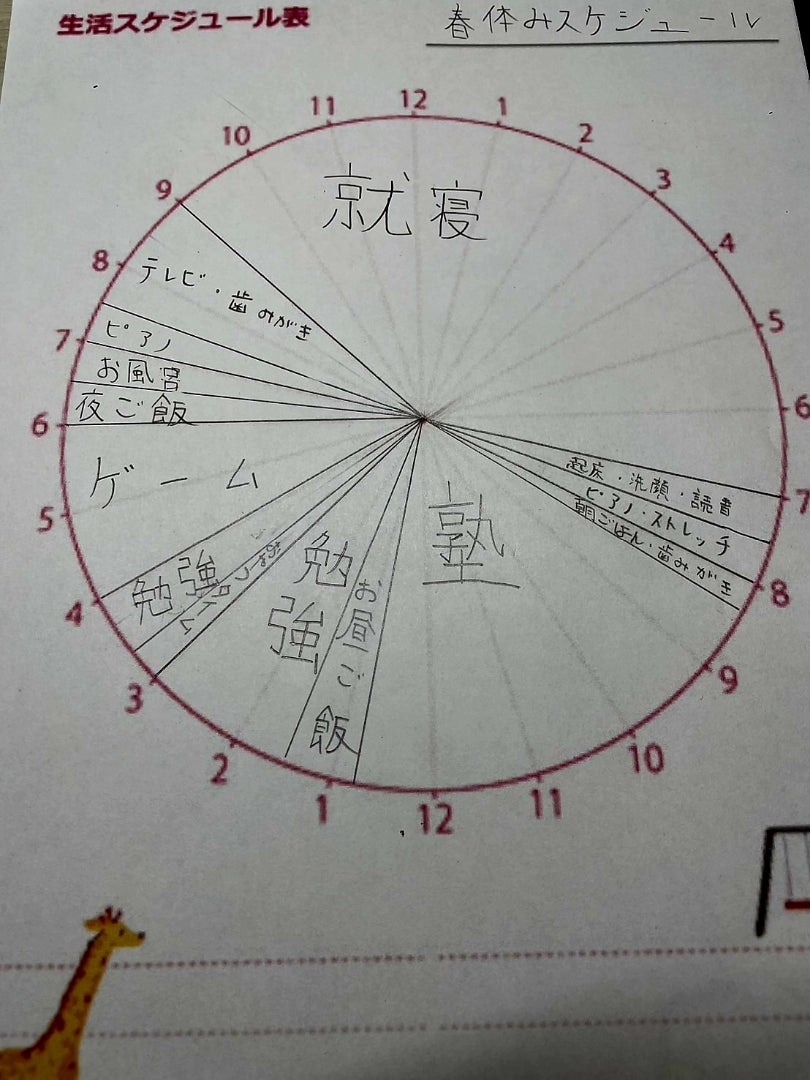 生活スケジュール表
春休みスケジュール
12
1
2
3
4
5
6
7
8
9
10
11
12
1
2
3
4
5
6
7
8
9
10
11
就寝
起床・洗顔・読書
ピアノ・ストレッチ
朝ごはん・歯みがき
塾
お昼ご飯
勉強
おやつ
タイム
勉強
ゲーム
夜ご飯
お風呂
ピアノ
テレビ・歯みがき